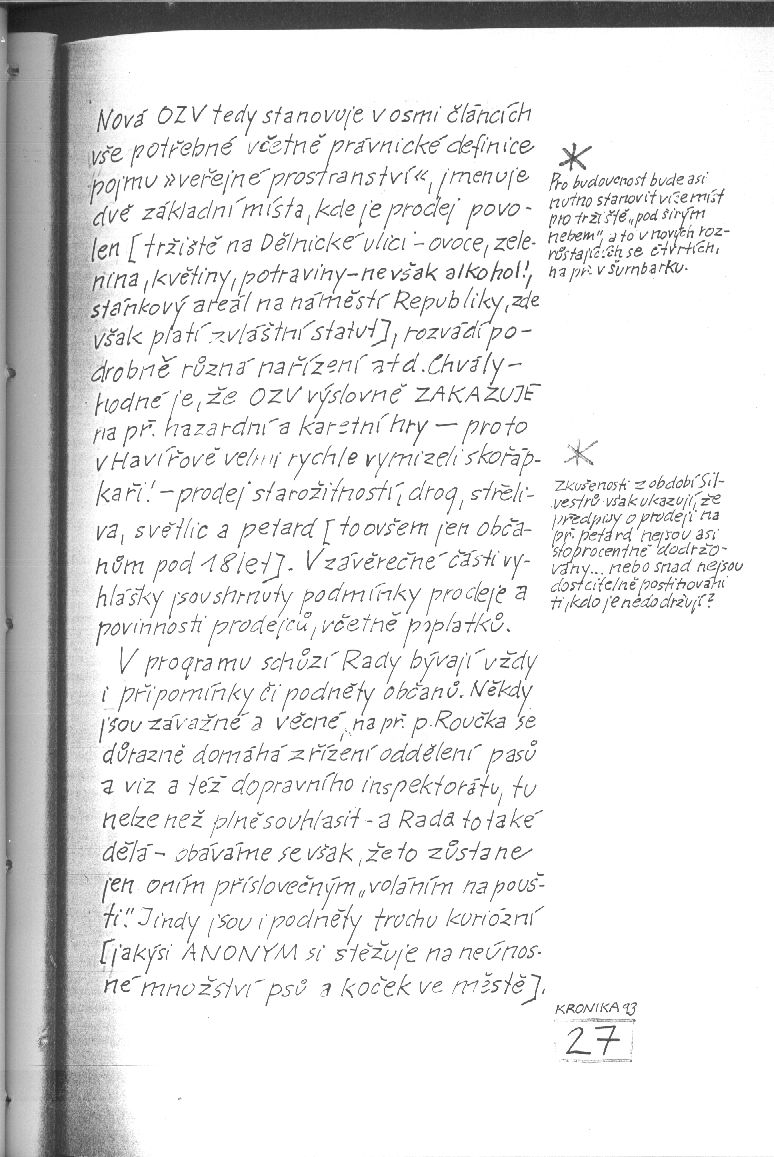 Nová OZV tedy stanovuje v osmi článcích
vše potřebné včetně právnické definice
pojmu »veřejné prostranství«, jmenuje
dvě základní místa, kde je prodej povo-
len [tržiště na Dělnické ulici - ovoce, zele-
nina, květiny, potraviny - nevšak alkohol!,
stánkový areál na náměstí Republiky, zde
však platí zvláštní statut], rozvádí po-
drobně různá nařízení atd. Chvály-
hodné je, že OZV výslovně ZAKAZUJE
na př. hazardní a karetní hry — proto
v Havířově velmi rychle vymizeli skořáp-
kaři! - prodej starožitností, drog, střeli-
va, světlic a petard [to ovšem jen obča-
nům pod 18 let]. V závěrečné části vy-
hlášky jsou shrnuty podmínky prodeje a
povinnosti prodejců, včetně poplatků.
V programu schůzí Rady bývají vždy
i připomínky či podněty občanů. Někdy
jsou závažné a věcné, na př. p. Roučka se
důrazně domáhá zřízení oddělení pasů
a víz a též dopravního inspektorátu, tu
nelze než plně souhlasit - a Rada to také
dělá - obáváme se však, že to zůstane
jen oním příslovečným „voláním na pouš-
ti." Jindy jsou i podněty trochu kuriózní
[jakýsi ANONYM si stěžuje na neúnos-
né množství psů a koček ve městě].
*
Pro budoucnost bude asi
nutno stanovit více míst
pro tržiště „pod širým
nebem", a to v nových roz-
růstajících se čtvrtích,
na př. v Šumbarku.
*
Zkušenosti z období Sil-
vestrů však ukazují, že
předpisy o prodeji na
př. petard nejsou asi
stoprocentně dodržo-
vány... nebo snad nejsou
dost citelně postihováni
ti, kdo je nedodržují?
KRONIKA 93
27